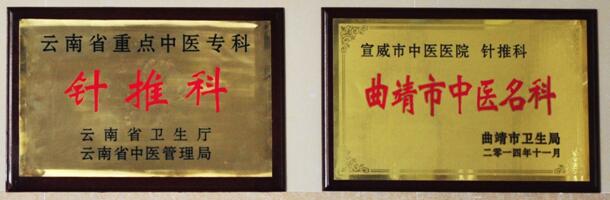 云南省重点中医专科
针推科
云南省卫生厅
云南省中医管理局
宣威市中医医院 针推科
曲靖市中医名科
曲靖市卫生局
二零一四年十一月